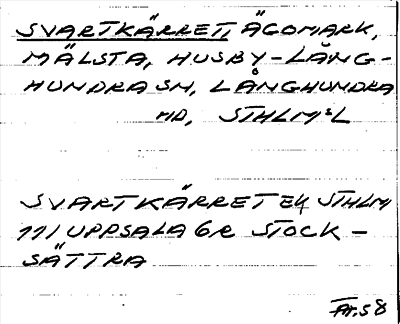 SVARTKÄRRET, ÄGOMARK,
MÄLSTA, HUSBY-LÅNG-
HUNDRA SN, LÅNGHUNDRA
HD, STHLMS L
SVARTKÄRRET EK STHLM
111 UPPSALA 6R STOCK-
SÄTTRA
Fr. 58